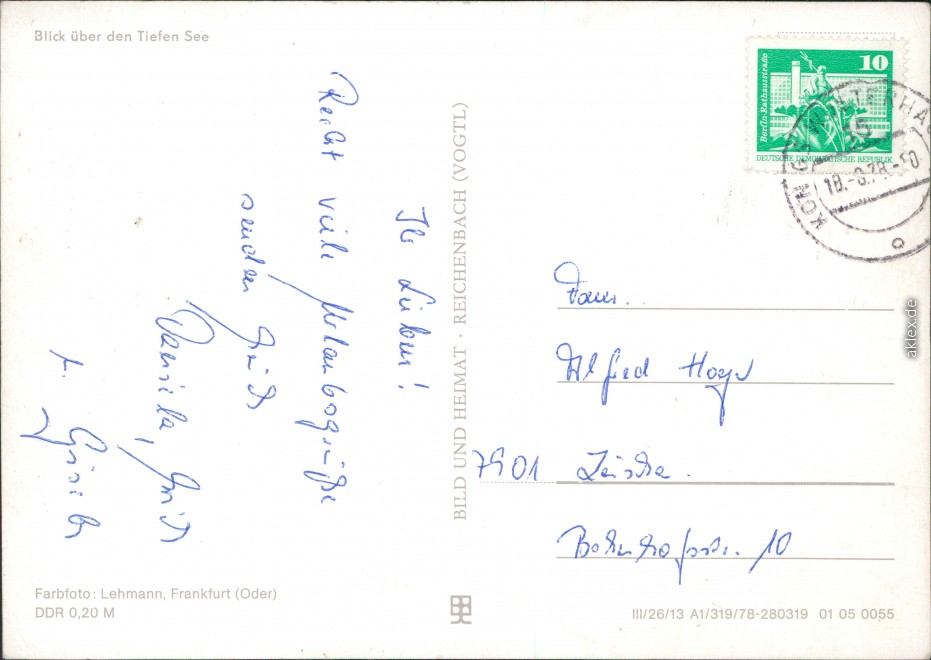 Blick über den Tiefen See
Ihr Lieben!
Recht viele Urlaubsgrüße
senden
Daniela,
u.
BILD UND HEIMAT · REICHENBACH (VOGTL)
10
Berlin-Rathausstraße
DEUTSCHE DEMOKRATISCHE REPUBLIK
15
Fam.
Alfred
7901
Bahnhofstr. 10
aklex.de
Farbfoto: Lehmann, Frankfurt (Oder)
DDR 0,20 M
III/26/13 A1/319/78-280319 01 05 0055